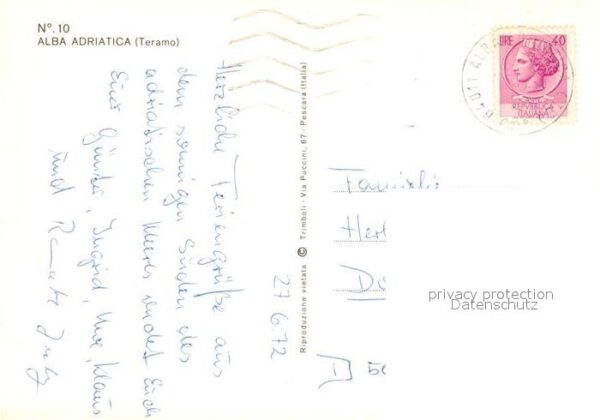 N°. 10
ALBA ADRIATICA (Teramo)
LIRE 40
REPUBBLICA
ITALIANA
64011 ALBA
Herzliche Feriengrüße aus
dem sonnigen Süden des
adriatischen Meeres sendet Euch
Eure Günter, Ingrid, Uwe, Klaus
und Renate
27.6.72
Riproduzione vietata © Trimboli - Via Puccini, 67 - Pescara (Italia)
Familie
Her
Dü
privacy protection
Datenschutz